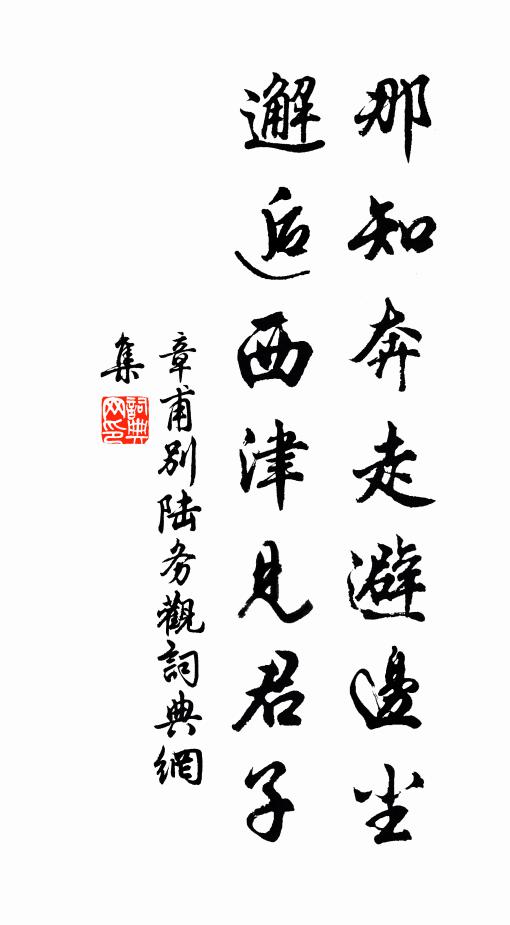 那知奔走避邊尘
邂逅西津見君子
章甫別陆务觀詞典網
集
詞典网印